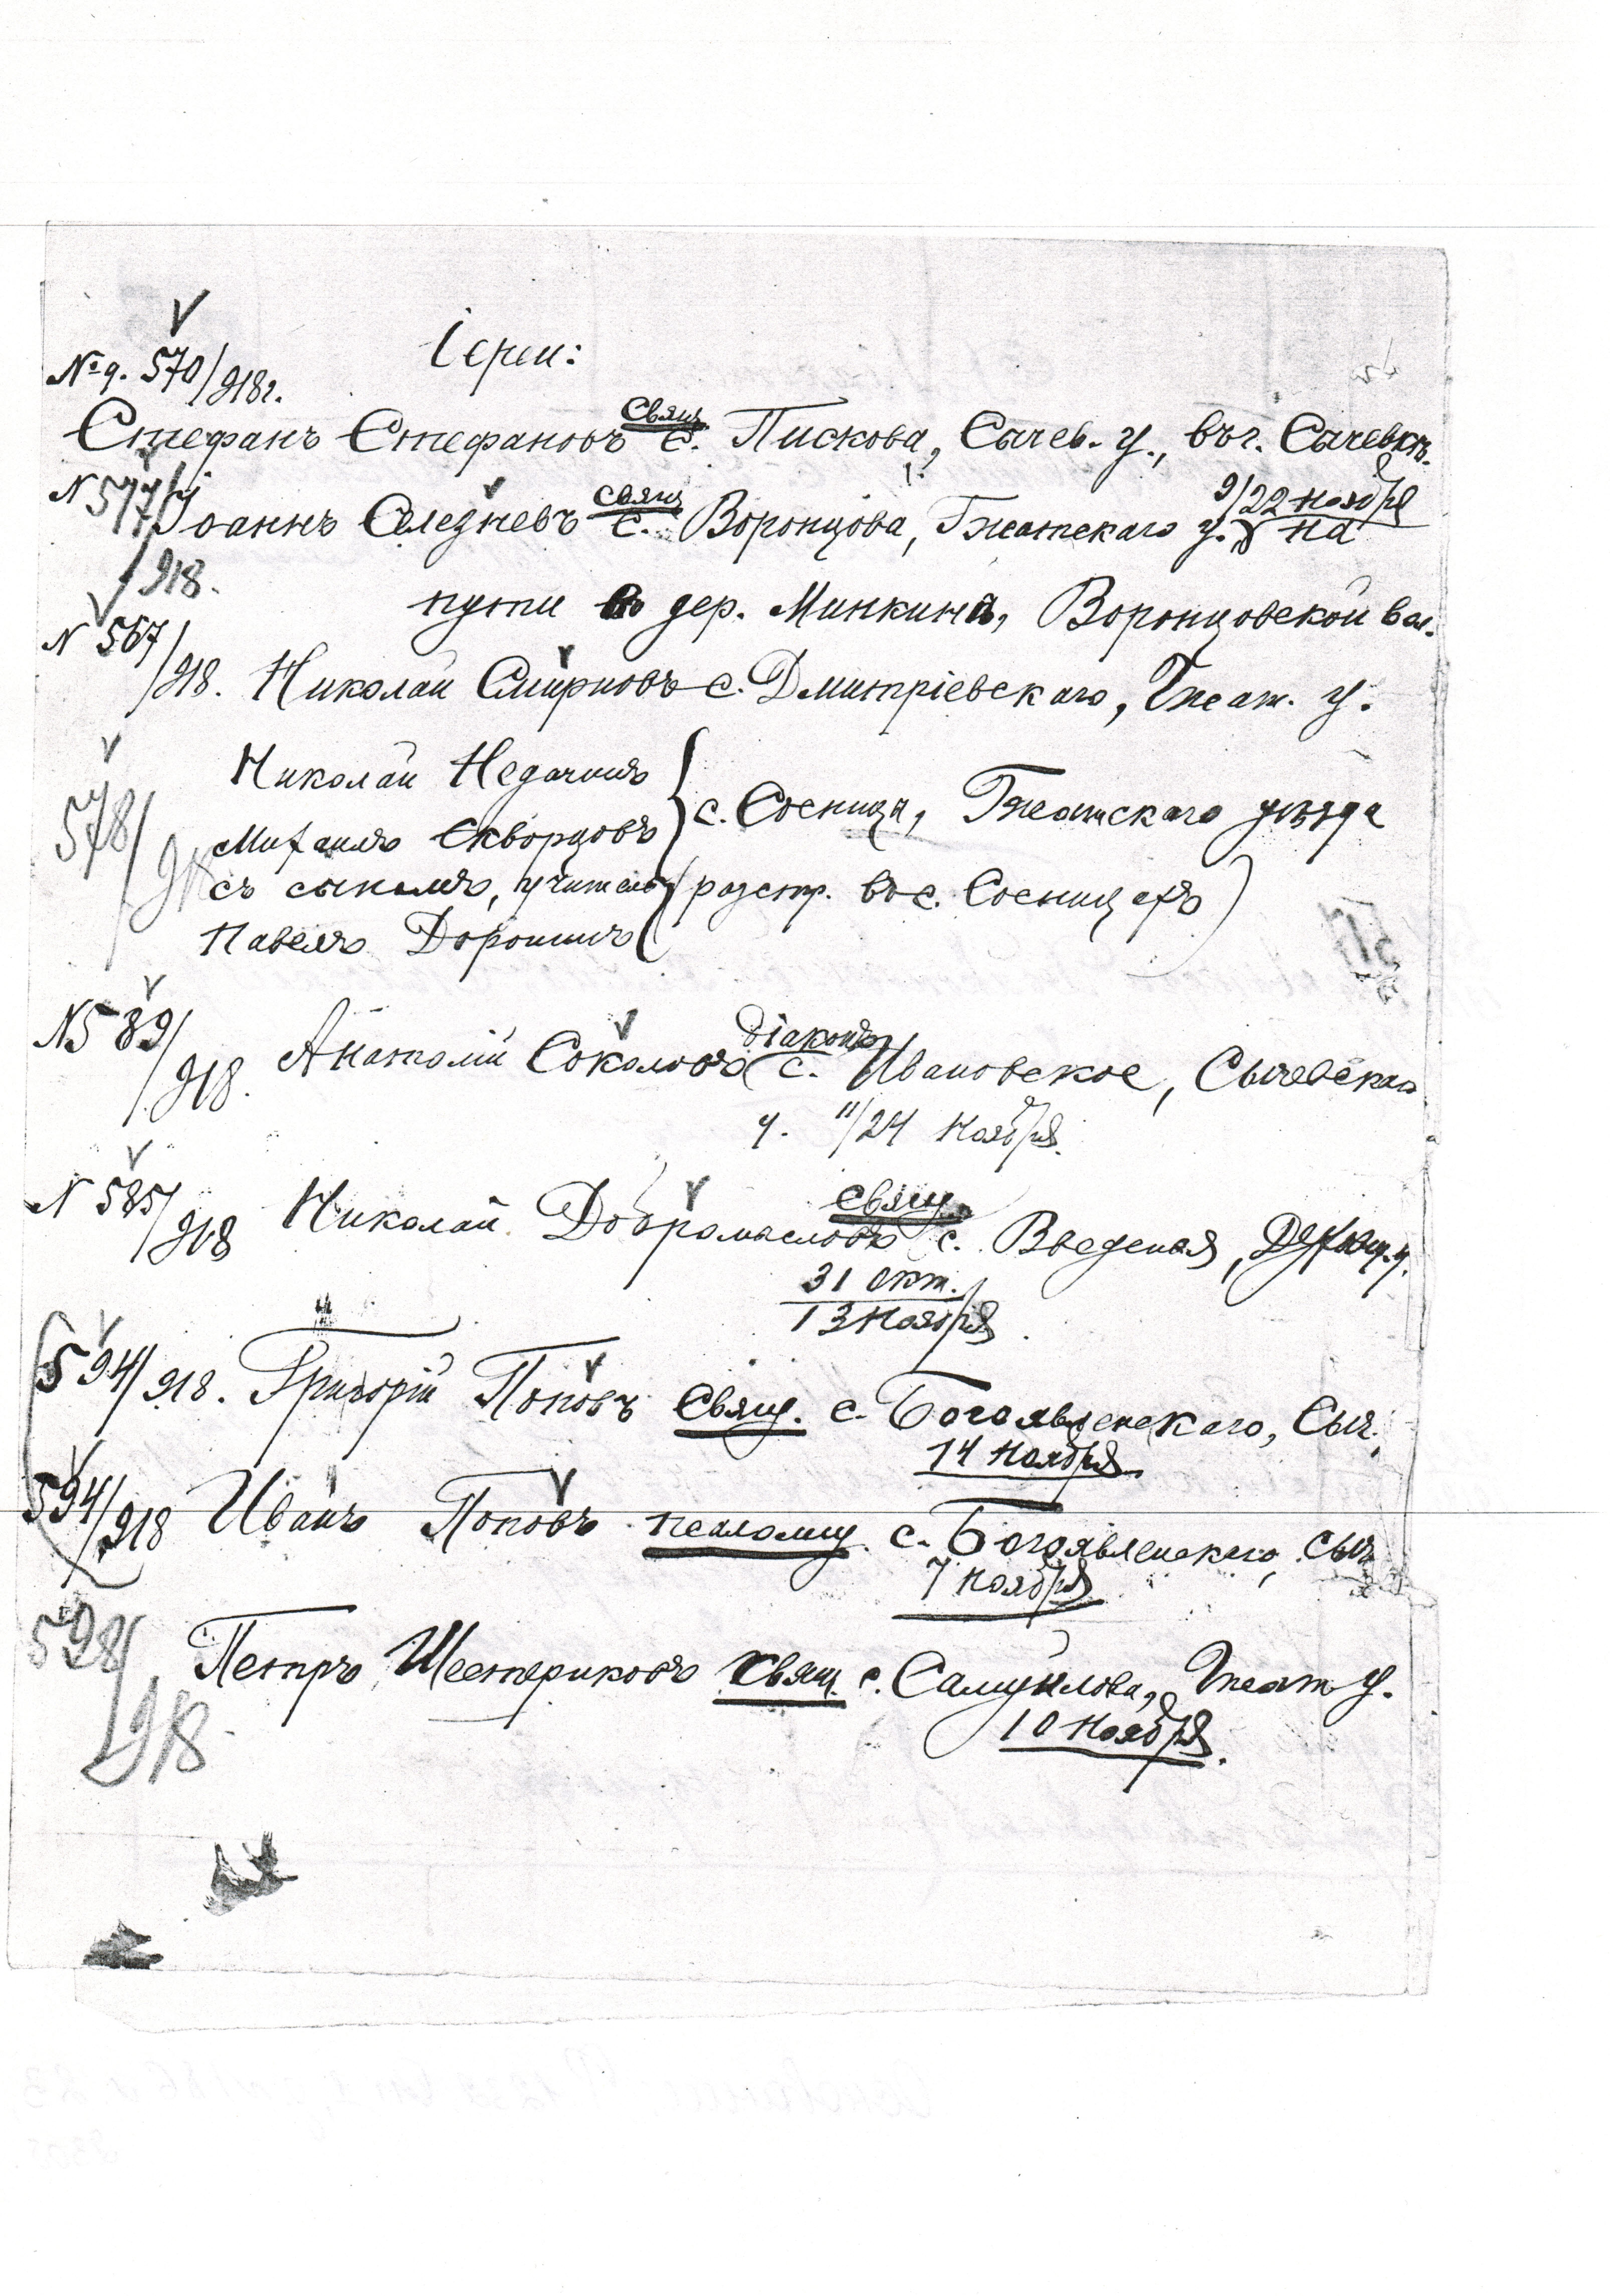 Іереи:
№ д. 570/918г.
свящ.
Стефанъ Стефановъ с. Пискова, Сычев. у., въ г. Сычевкѣ.
N 577/918.
свящ 9/22 ноября
Іоаннъ Селезневъ с. Воронцова, Гжатскаго у. на
пути въ дер. Минкино, Воронцовской вол.
N 567/918. Николай Смирновъ с. Дмитріевскаго, Гжат. у.
578/918
Николай Недачинъ
с. Сосница, Гжатскаго уѣзда
Михаилъ Скворцовъ
съ сыномъ, учитель (разстр. въ с. Сосницахъ)
Павелъ Дорошинъ
діаконъ
N589/918. Анатолій Соколовъ с. Ивановское, Сычевскаго
у. 11/24 ноября.
свящ.
N 585/918 Николай Добромысловъ с. Введенья, Духовщ. у.
31 окт.
13 ноября.
594/918. Григорій Поповъ свящ. с. Богоявленскаго, Сыч.
14 ноября.
594/918 Иванъ Поповъ псаломщ. с. Богоявленскаго, Сыч
7 ноября
598/918. Петръ Шестериковъ свящ. с. Самуилова, Гжат у.
10 ноября.